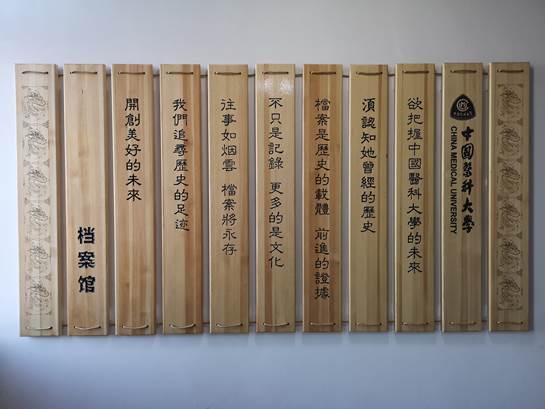 中國醫科大學
CHINA MEDICAL UNIVERSITY
欲把握中國醫科大學的未來
須認知她曾經的歷史
檔案是歷史的載體 前進的證據
不只是記錄 更多的是文化
往事如烟雲 檔案將永存
我們追尋歷史的足迹
開創美好的未來
档案馆